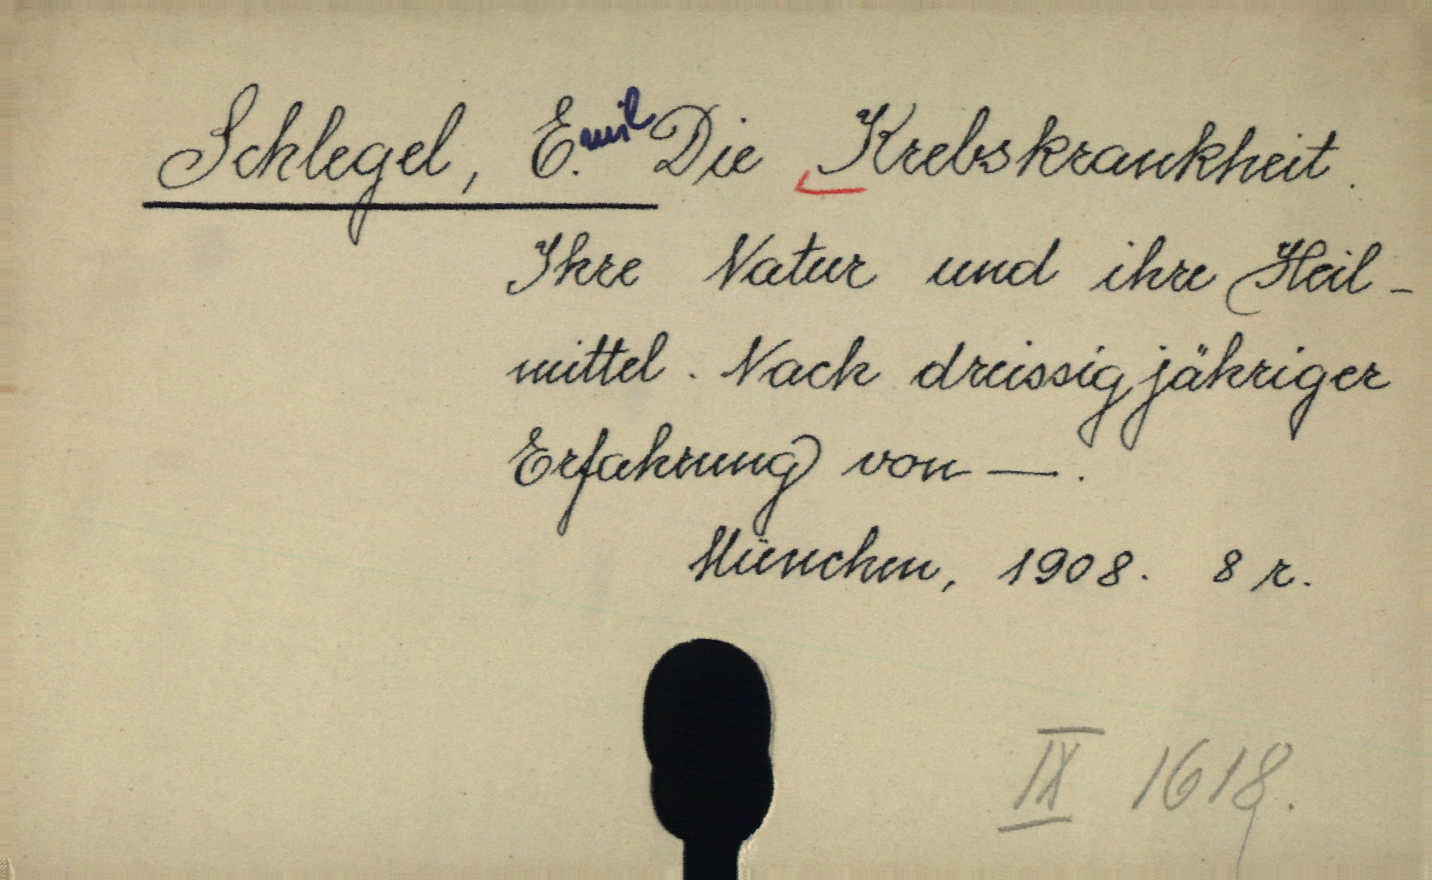 Schlegel, E.mil Die Krebskrankheit.
Ihre Natur und ihre Heil-
mittel. Nach dreissigjähriger
Erfahrung von —.
München, 1908. 8 r.
IX 1618.